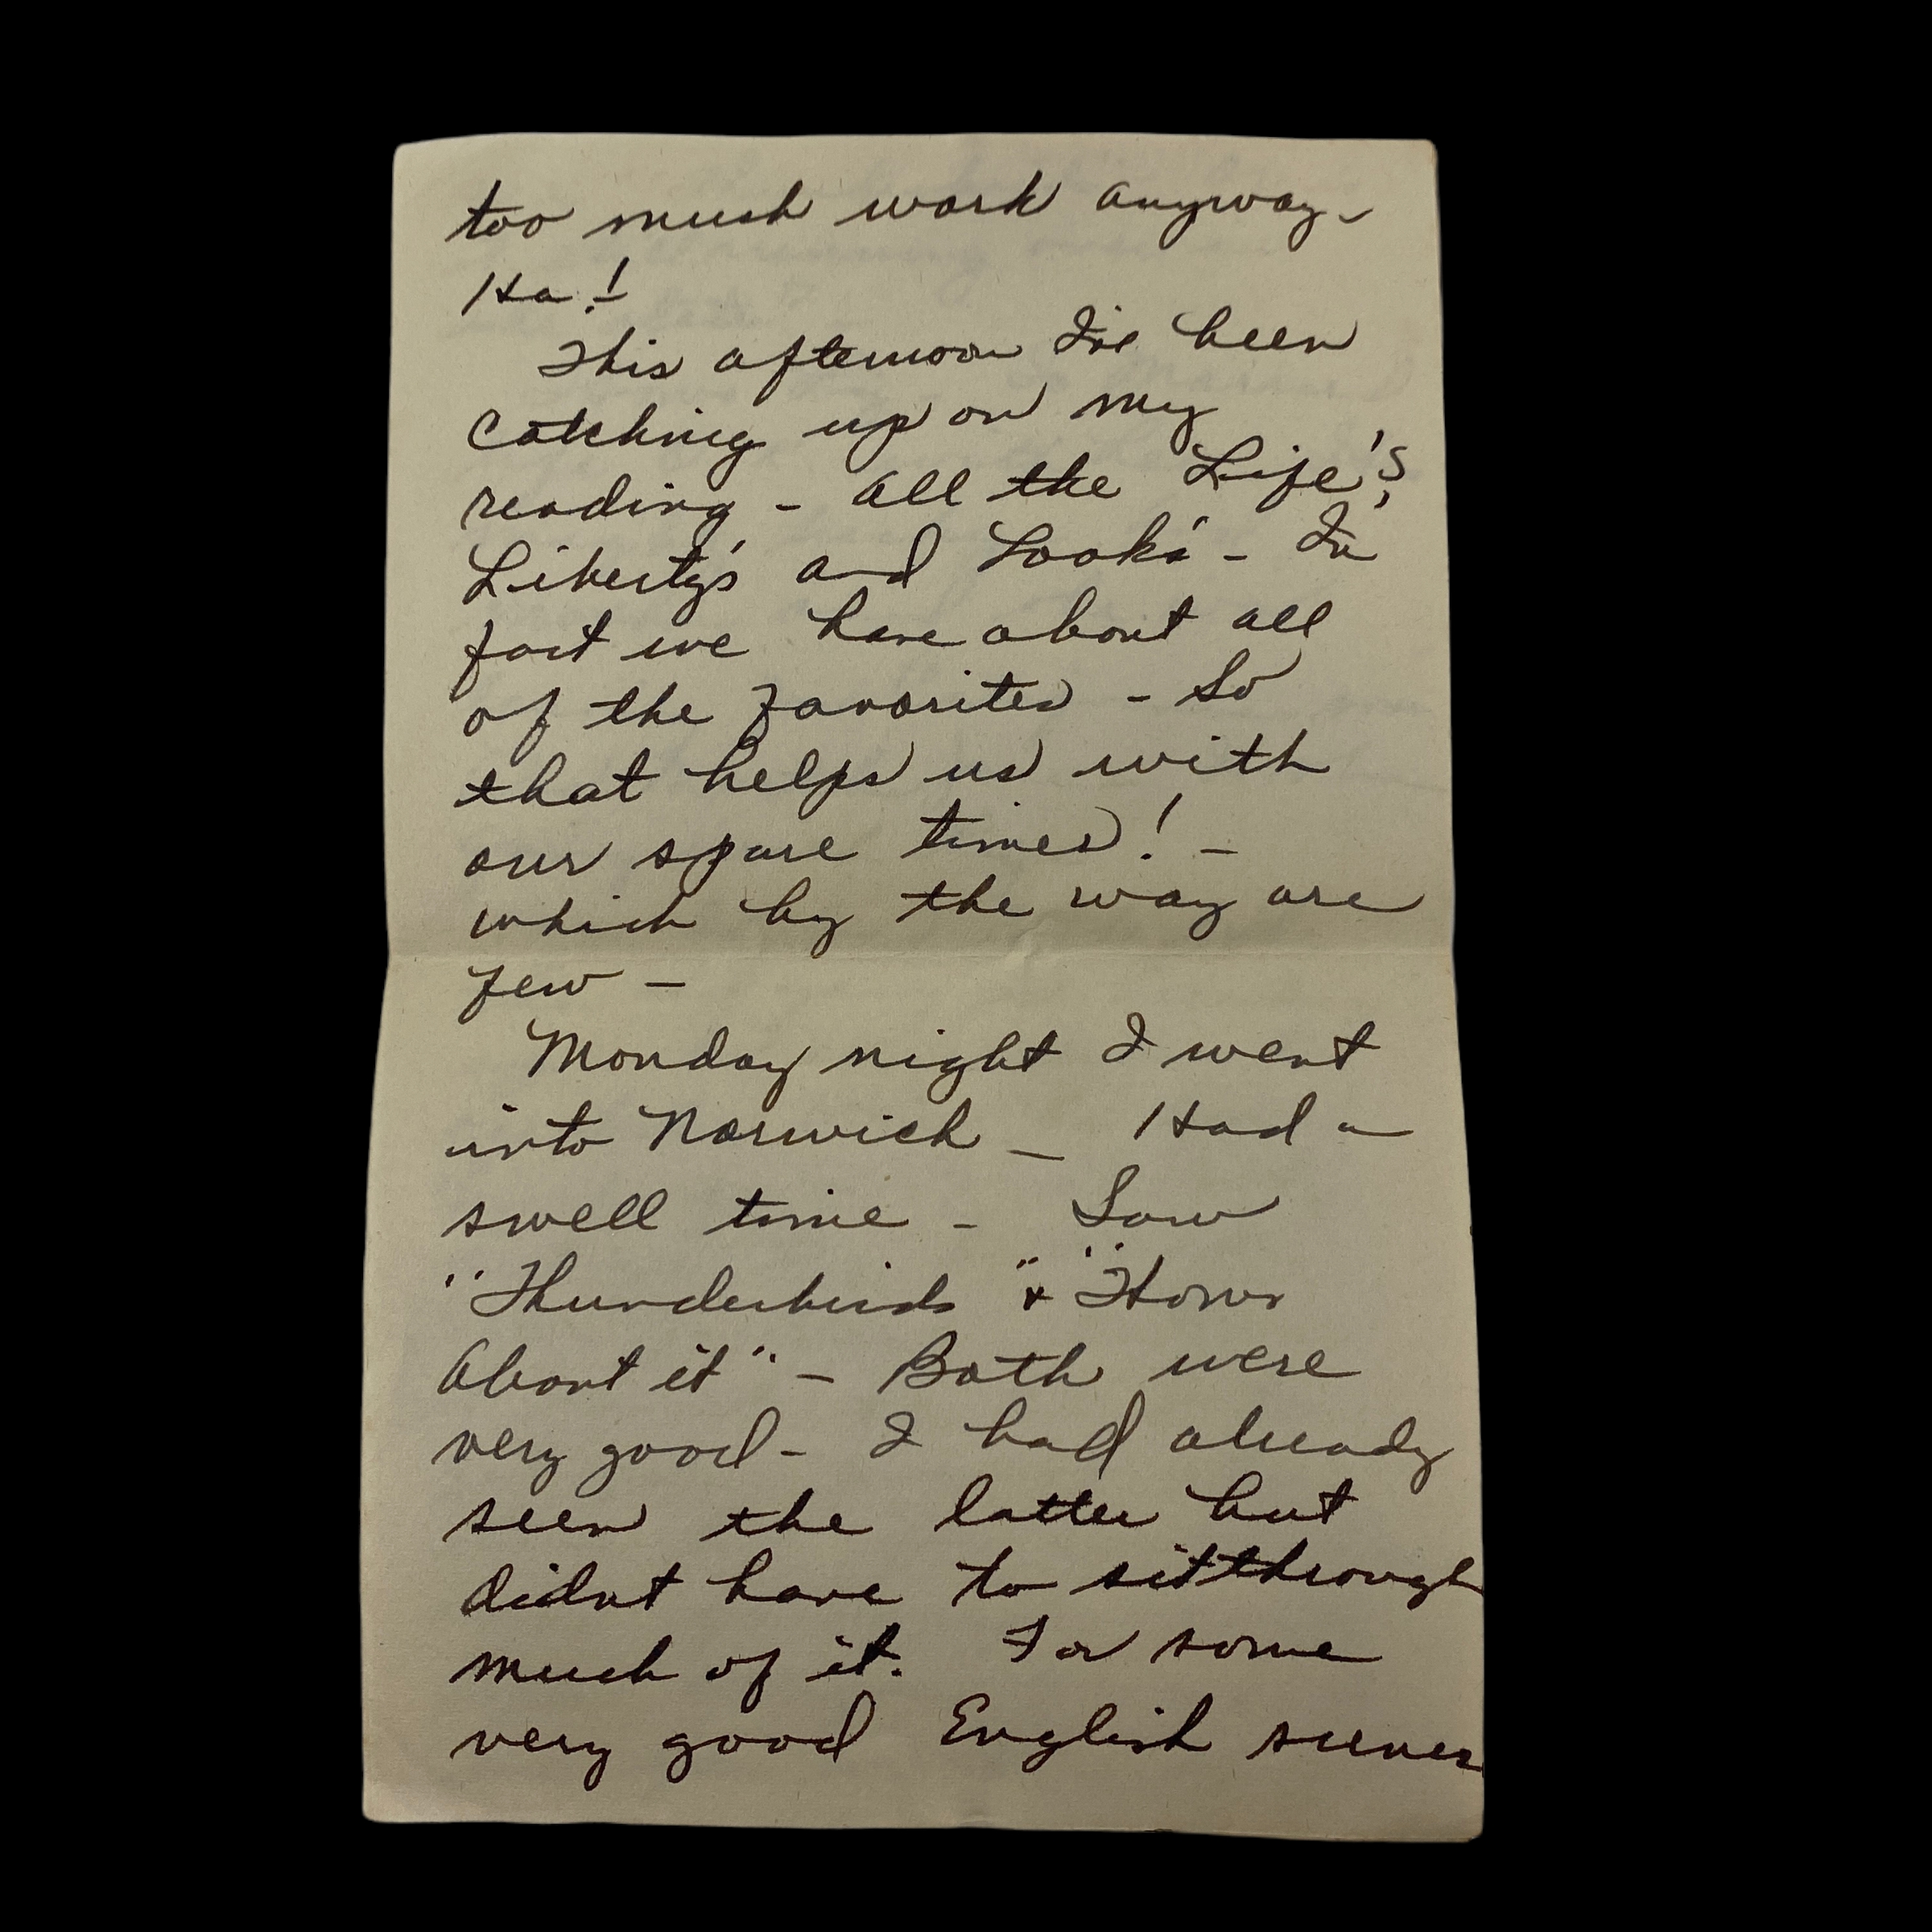 too much work anyway -
Ha!
This afternoon I've been
catching up on my
reading - all the Life's,
Liberty's and Look's - In
fact we have about all
of the favorites - So
that helps us with
our spare times! -
which by the way are
few -
Monday night I went
into Norwich - Had a
swell time - Saw
"Thunderbirds" & "How's
About it" - Both were
very good - I had already
seen the latter but
didn't have to sit through
much of it. For some
very good English scenes